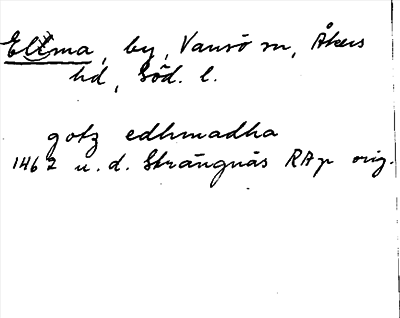 Eltma, by, Vansö sn, Åkers
hd, Söd. l.
gotz edhmadha
1462 u. d. Strängnäs RAp orig.